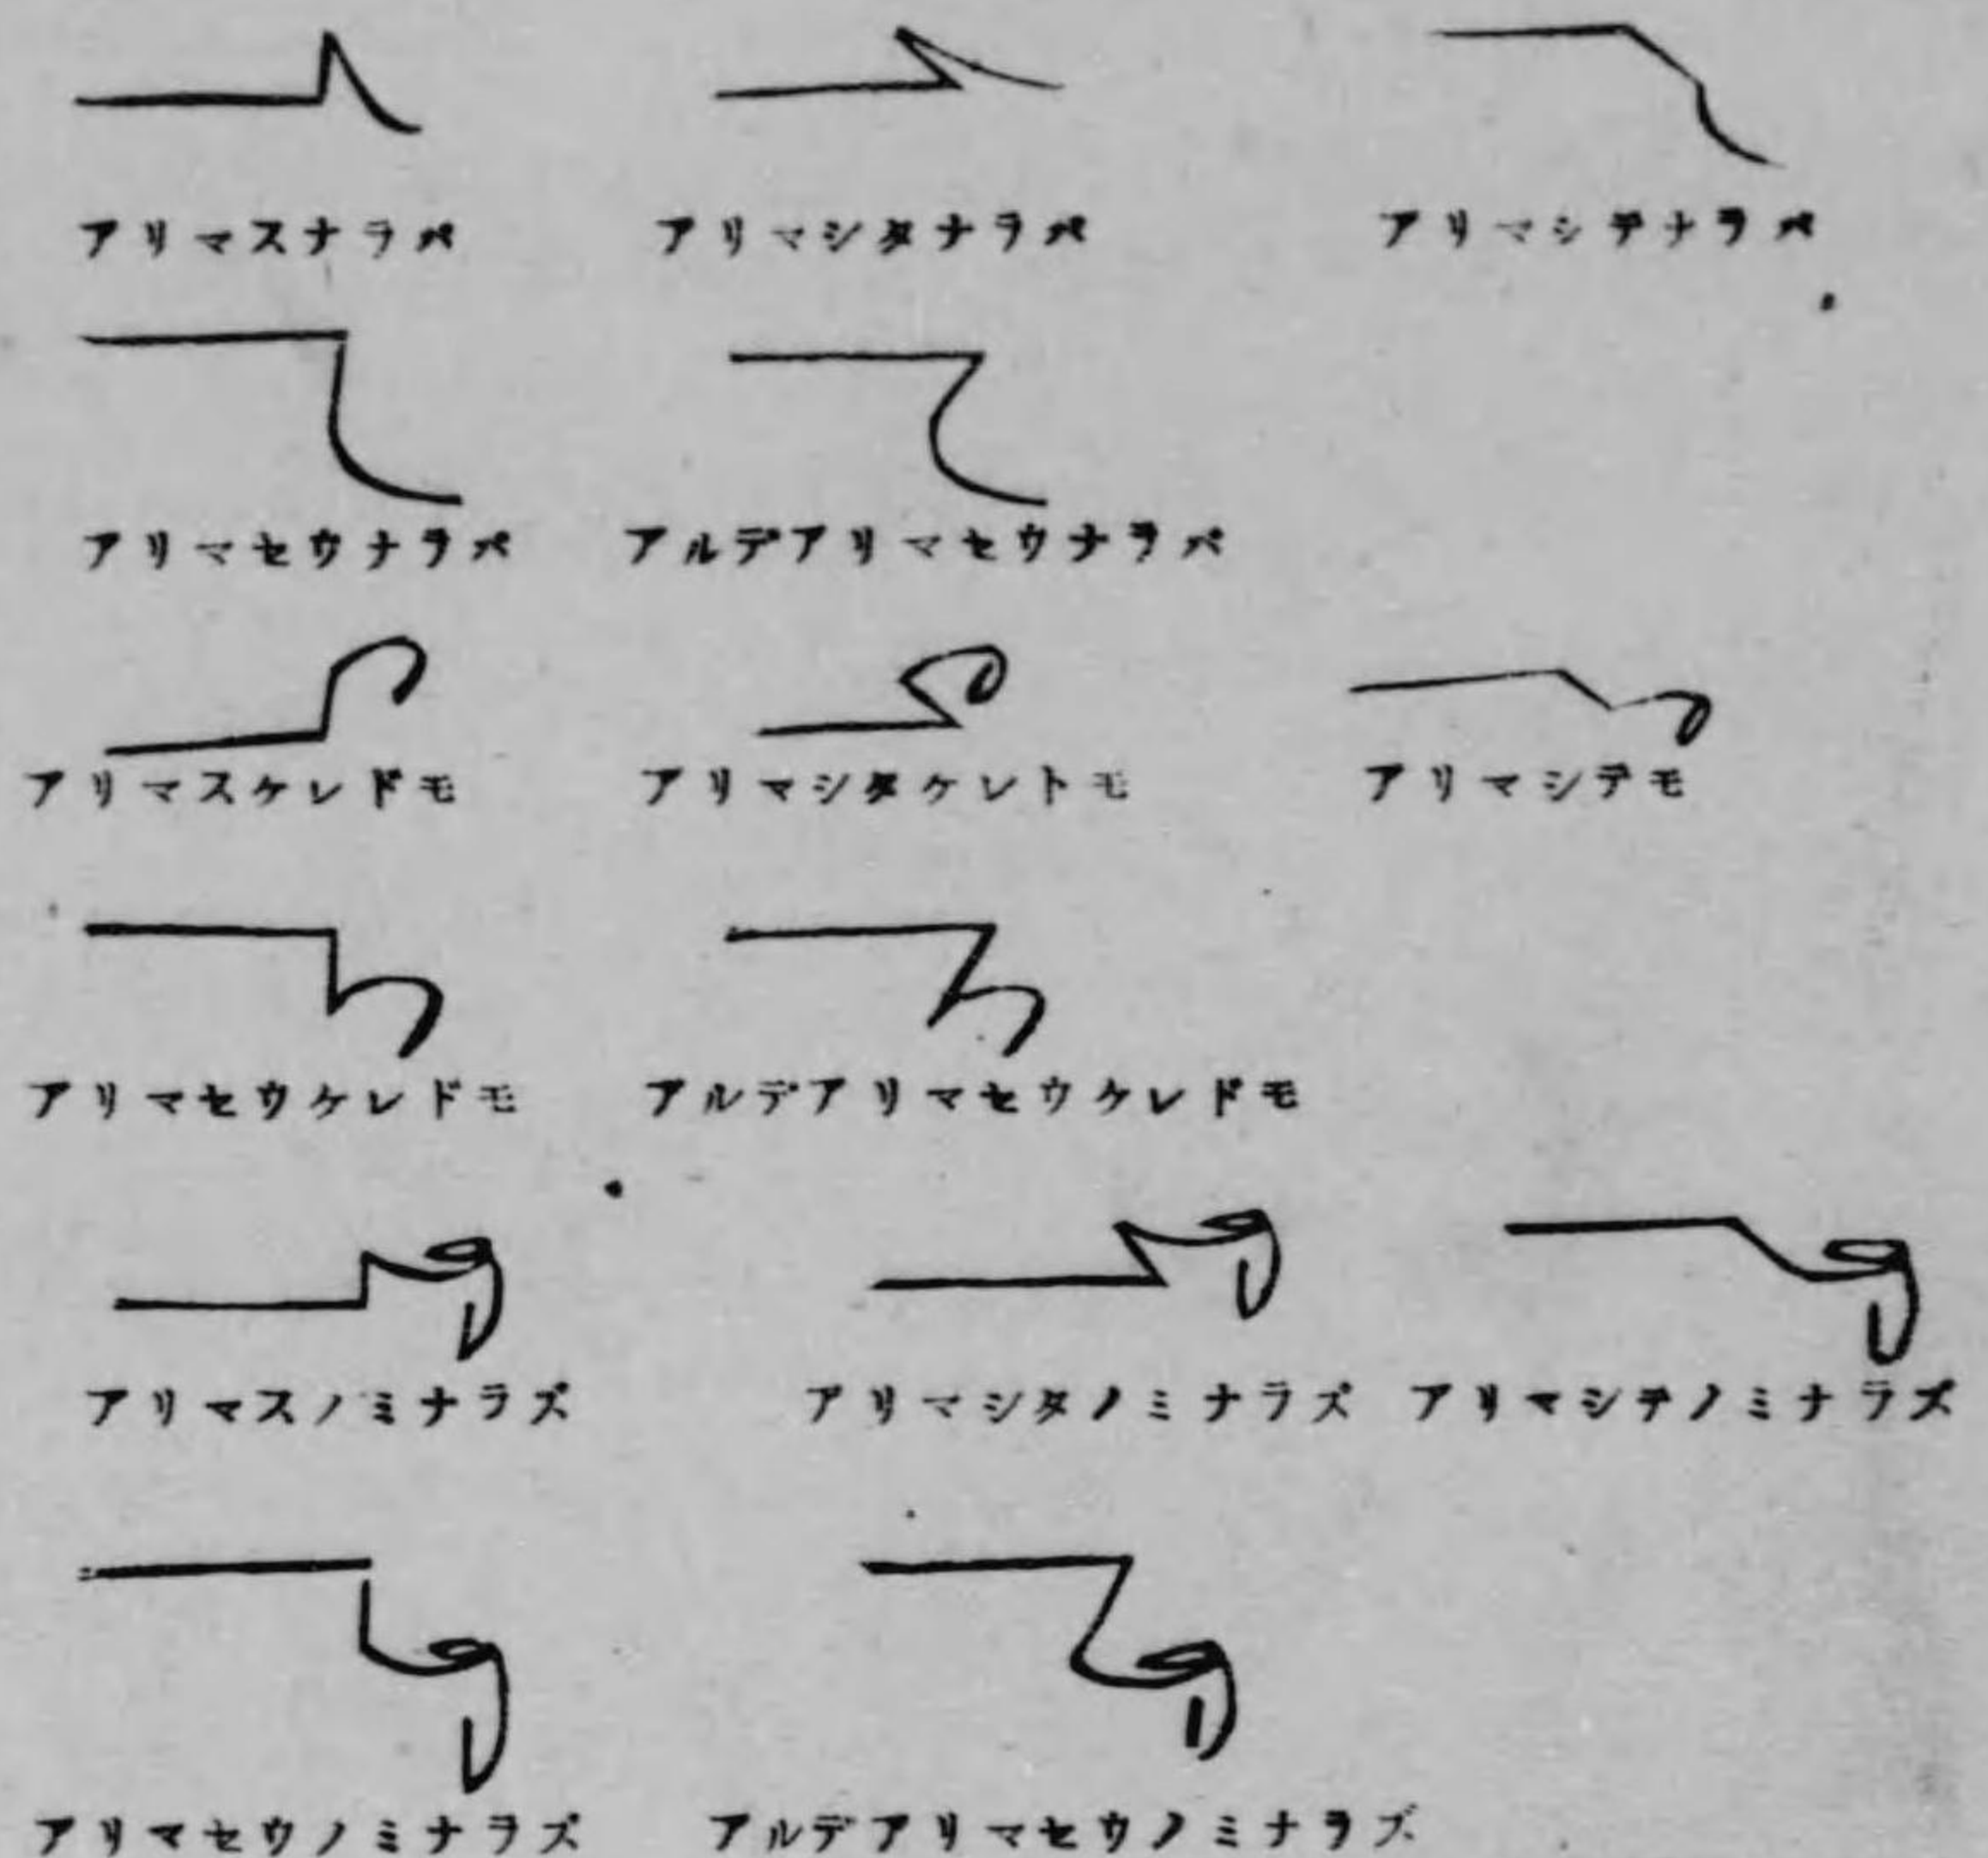 アリマスナラバ アリマシタナラバ アリマシテナラバ
アリマセウナラバ アルデアリマセウナラバ
アリマスケレドモ アリマシタケレトモ アリマシテモ
アリマセウケレドモ アルデアリマセウケレドモ
アリマスノミナラズ アリマシタノミナラズ アリマシテノミナラズ
アリマセウノミナラズ アルデアリマセウノミナラズ